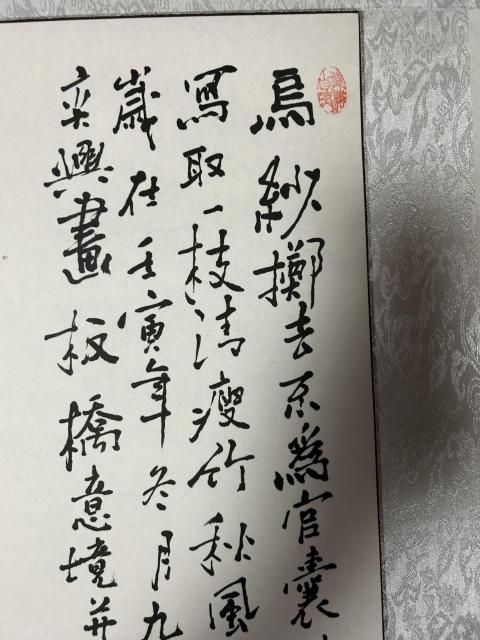 烏紗擲去不為官囊
寫取一枝清瘦竹秋風
歲在壬寅年冬月九
奕興畫板橋意境并